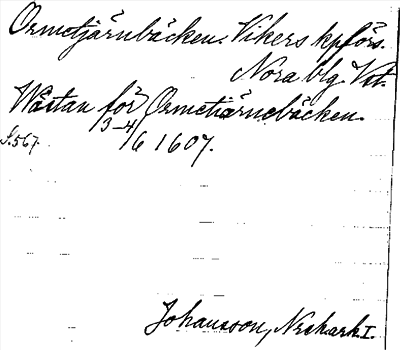 Ormetjärnbäcken. Vikers kpförs.
Nora blg. Vst.
Wästan för Ormetiärnebäcken.
S. 567. 3-4/6 1607.
Johansson, Noraskog I.